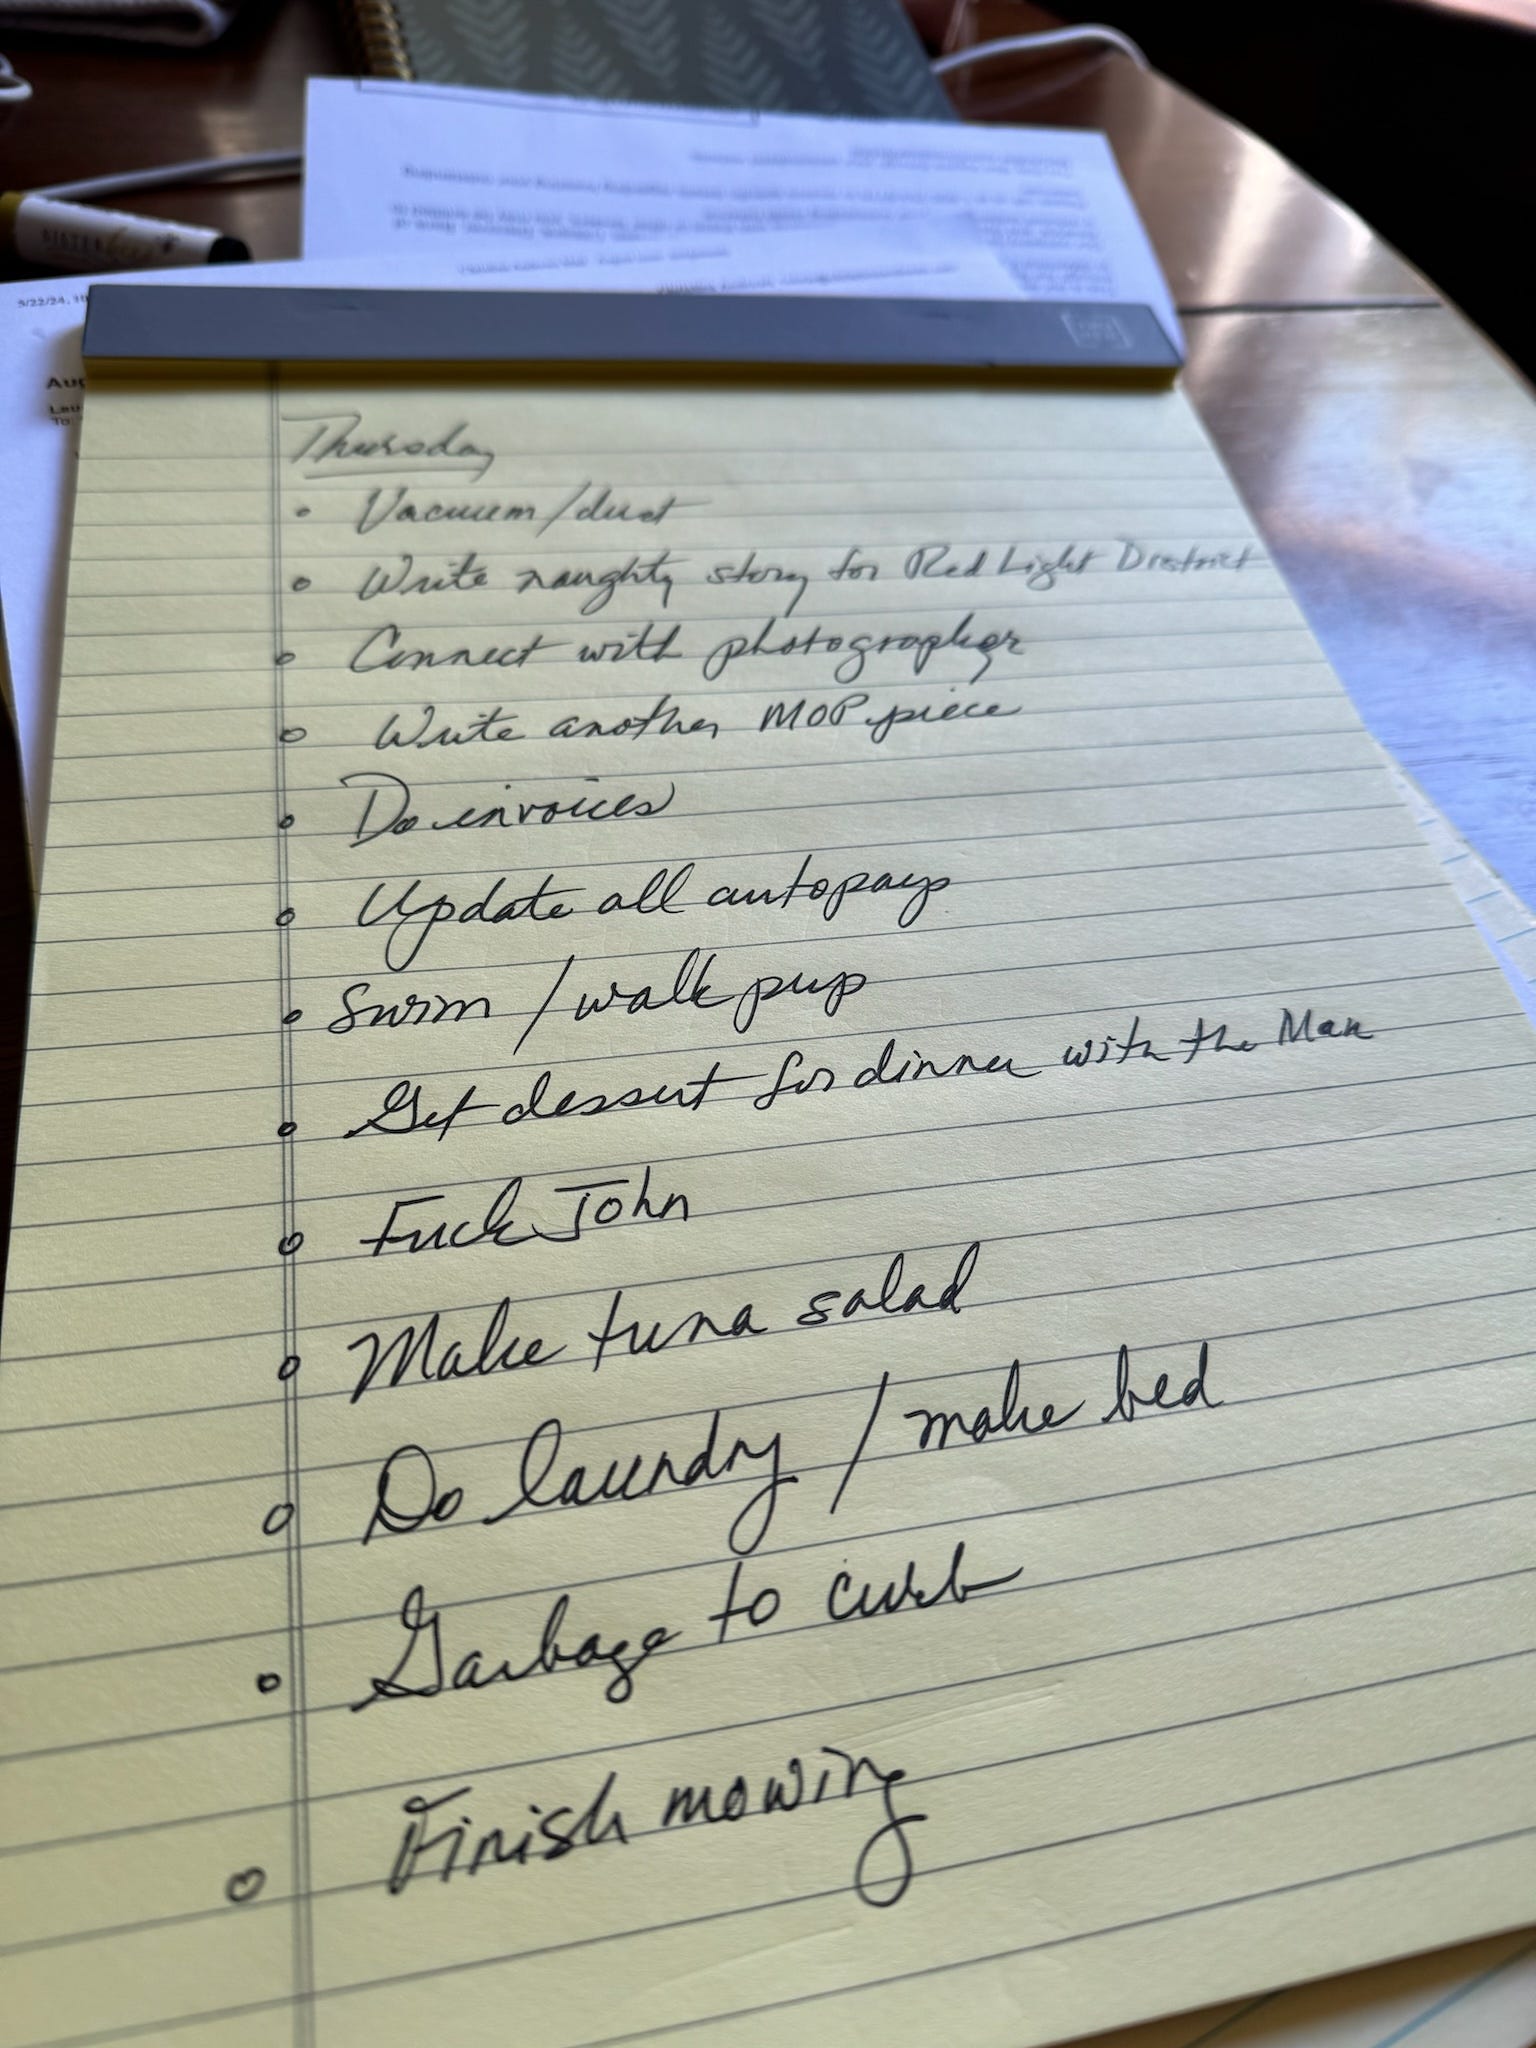 SISTER bees
5/22/24, 10
Aug
Lau
To:
Thursday
• Vacuum/dust
• Write naughty story for Red Light District
• Connect with photographer
• Write another MOP piece
• Do invoices
• Update all autopays
• Swim / walk pup
• Get dessert for dinner with the Man
• Fuck John
• Make tuna salad
• Do laundry / make bed
• Garbage to curb
• Finish mowing